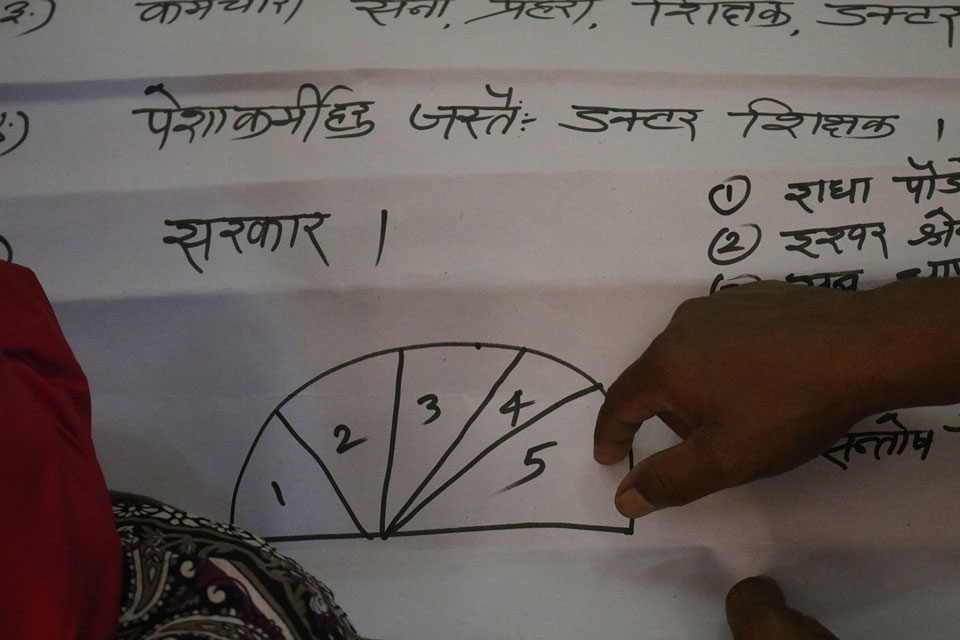 ३.) कर्मचारी सेना, प्रहरी, शिक्षक, डक्टर
पेशाकर्मीहरु जस्तै: डक्टर शिक्षक ।
सरकार ।
① राधा
② इश्वर
सन्तोष
1
2
3
4
5